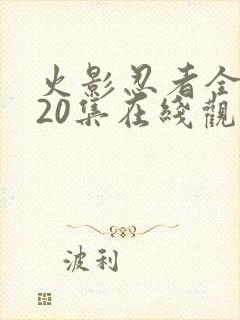 火影忍者全
20集在綫觀
波利